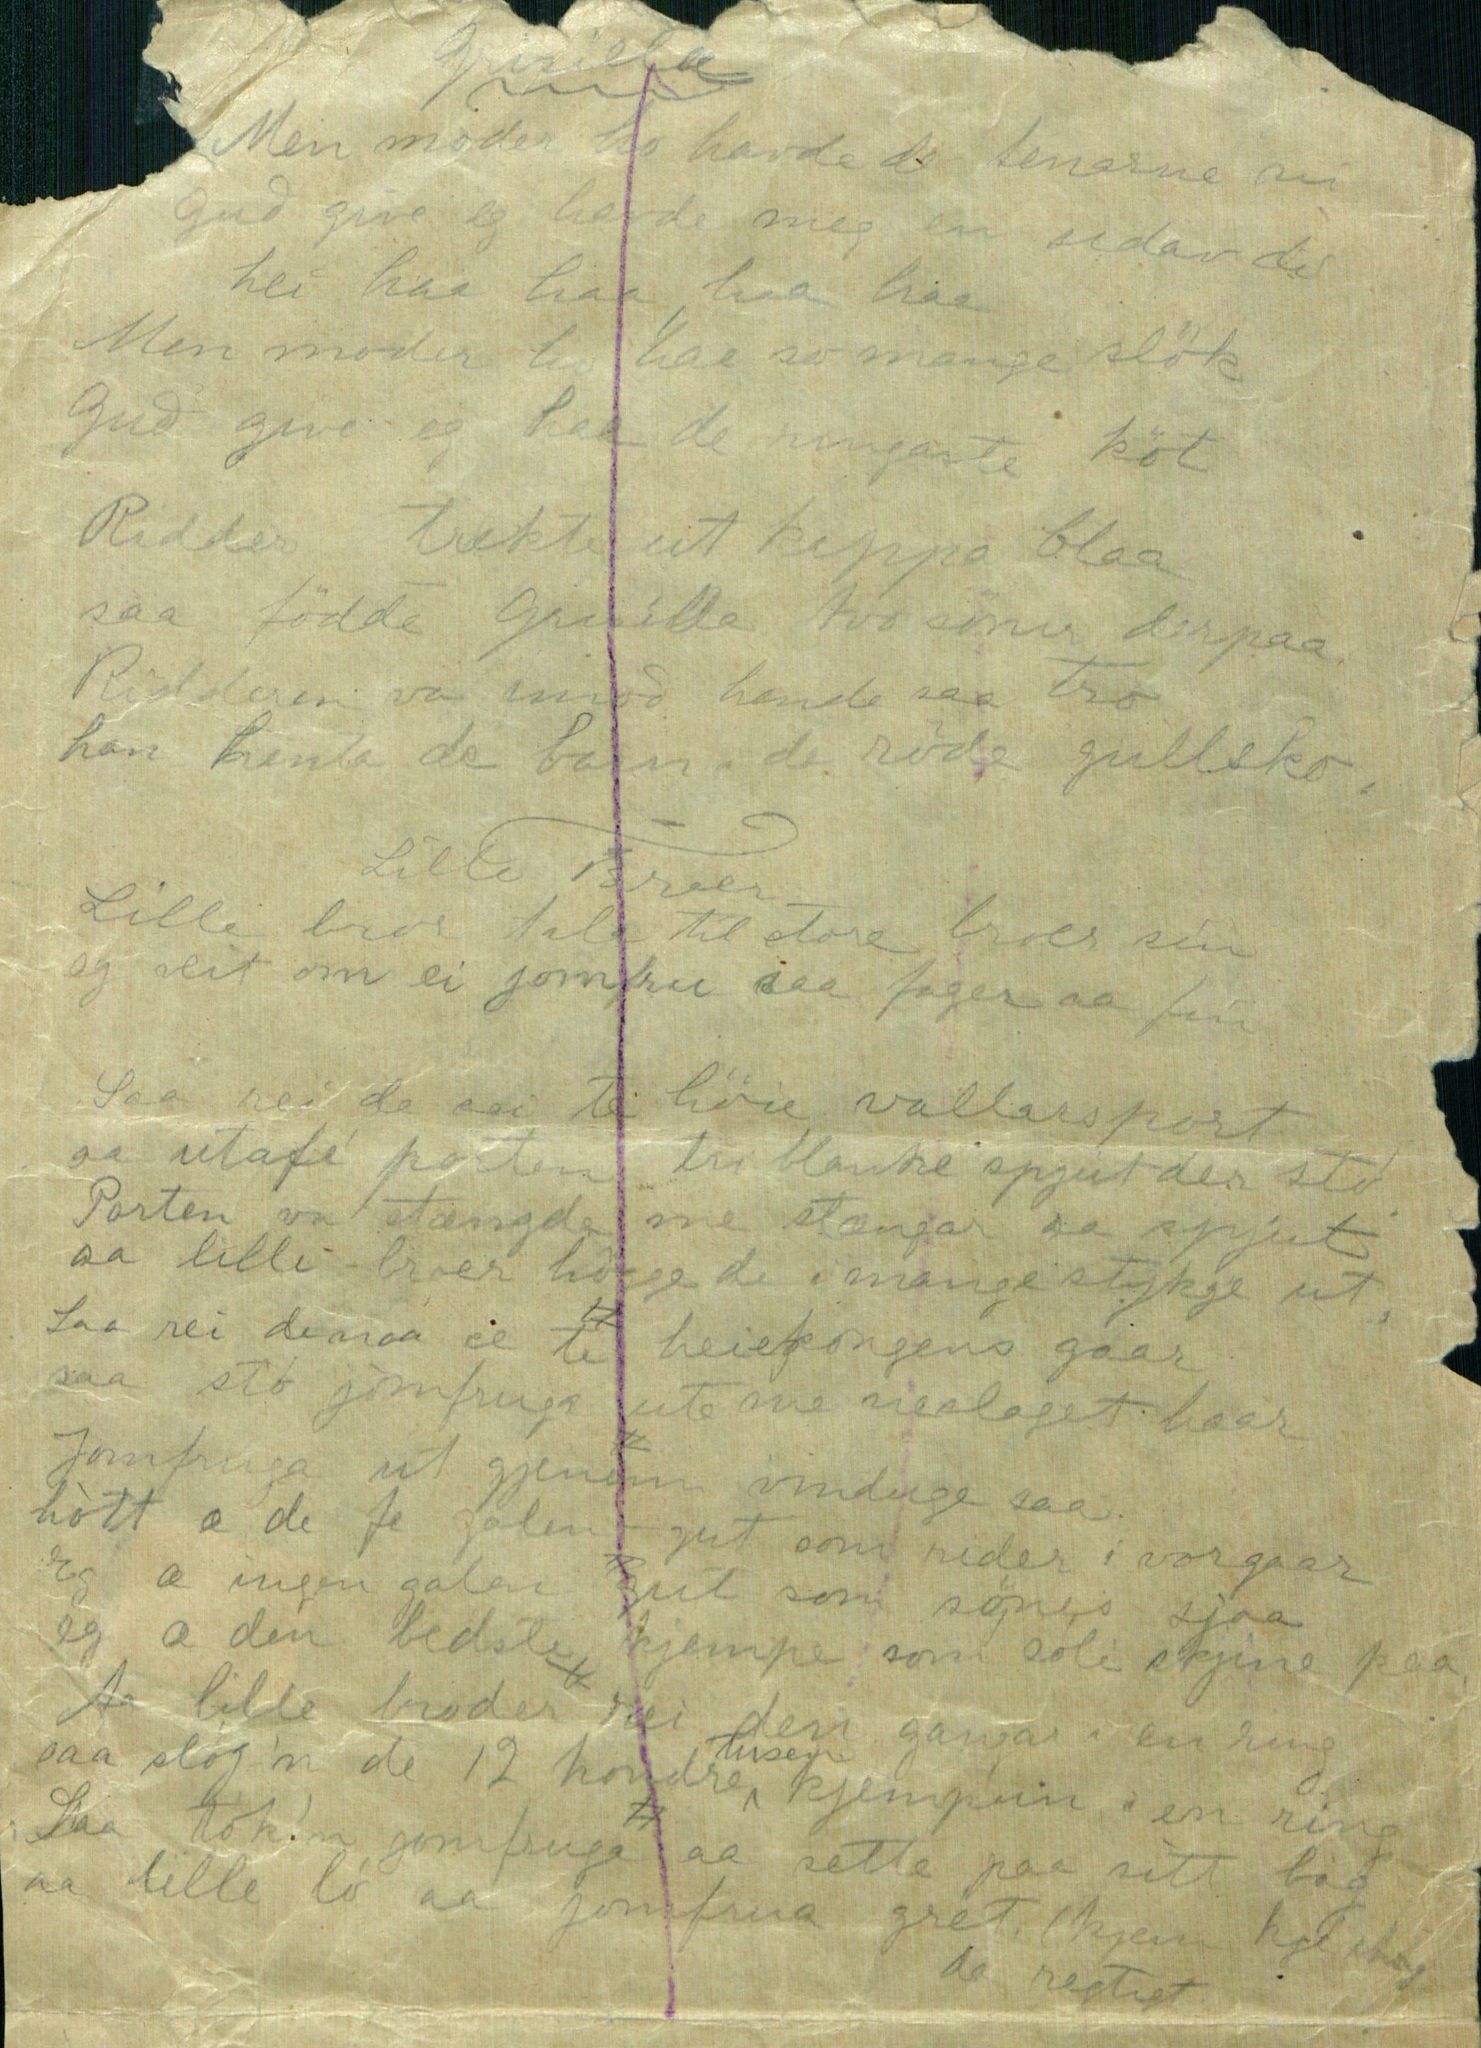 Grisilla
Men moder ho havde de tenarne ni
Gud give eg havde meg en udav di
hei haa haa haa haa
Men moder ho hae so mange slök
Gud give eg haa de ringaste köt
Ridder trekte ut kappa blaa
saa födde Grisilla two söner derpaa.
Ridderen va imod hende saa tro
han henta de barn de röde gullsko.
Lille Broer
Lille bror tala til store broer sin
eg veit om ei jomfru saa fager aa fin
Saa rei de aei te höie vallarsport
aa utafé porten tri blanke spjut der sto
Porten va stængde me stængar aa spjut
aa lille broer högge de i mange stykje ut,
Saa rei de naa te heiekongens gaar
saa sto jomfruga ute me uslaget haar
Jomfruga ut gjenom vinduge saa
hòtt æ de fe galen gut som rider i vorgaar
Eg æ ingen galen gut som sönes sjaa
eg æ den bedste kjempe som soli skjine paa,
Aa lille broder rei den gangar i en ring
saa slóg'n de 12 hondre tusen kjempun i en ring
Saa tók'n jomfruga aa sette paa sitt bag
aa lille ló aa jomfrua grét. (kjem
de regtigt